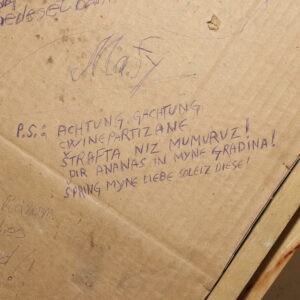 Mafy
P.S.: ACHTUNG, GACHTUNG,
CWINEPARTIZANE
ŠTRAFTA NIZ MUMURUZ!
DIR ANANAS IN MYNE GRADINA!
ŠPRING MYNE LIEBE SOLEIZ DIESE!